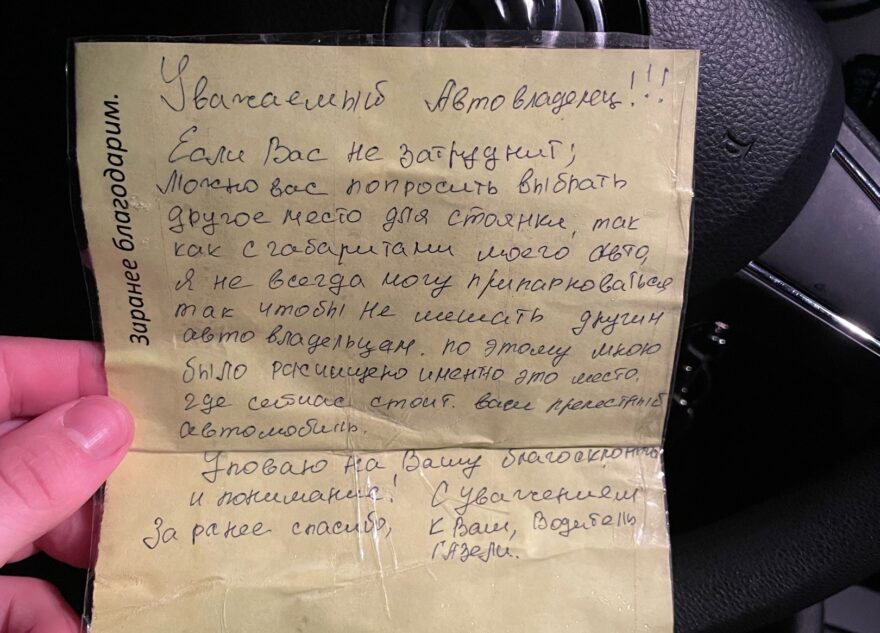 Заранее благодарим.
Уважаемый Автовладелец!!!
Если Вас не затруднит;
Можно вас попросить выбрать
другое место для стоянки, так
как с габаритами моего авто,
я не всегда могу припарковаться
так чтобы не мешать другим
авто владельцам. по этому мною
было расчищено именно это место,
где сейчас стоит. ваш прелестный
автомобиль.
Уповаю на Вашу благосклонность
и понимание! С уважением
За ранее спасибо, к Вам, Водитель
ГАЗели.